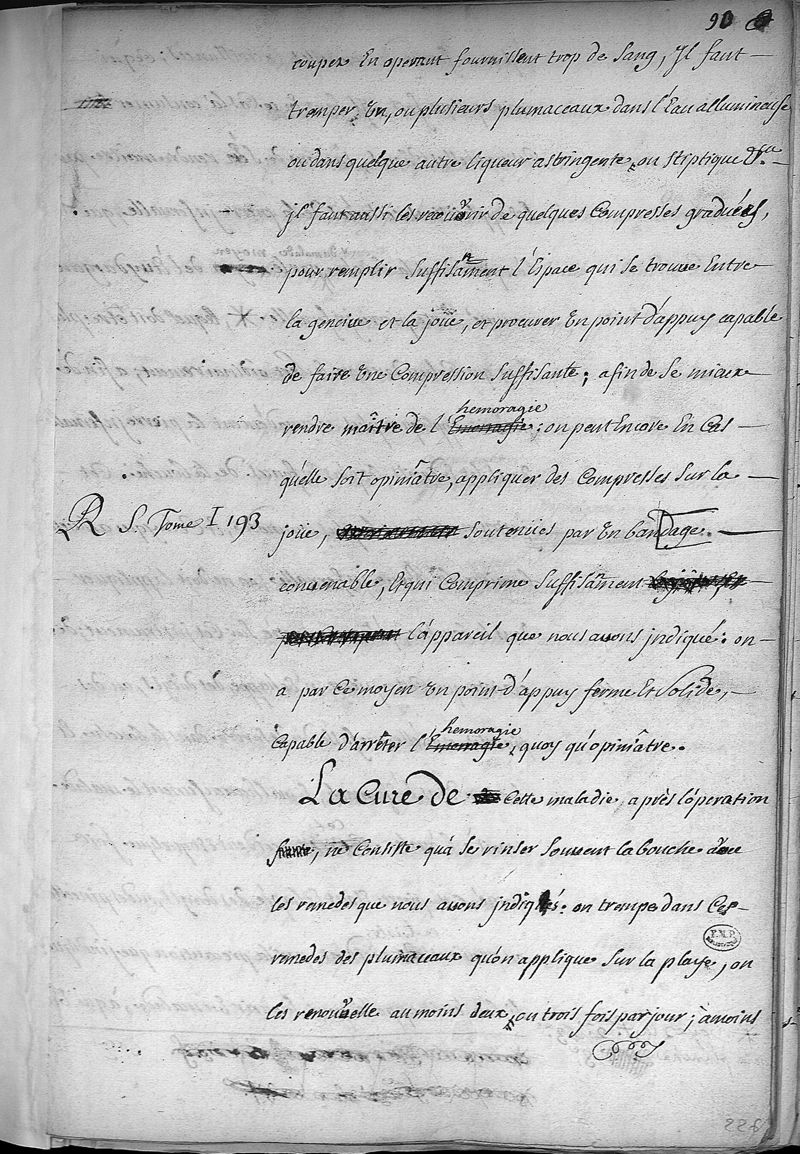 90
couper En operant fournissent trop de sang, Jl faut
tremper Un, ou plusieurs plumaceaux dans l'Eau allumineuse
ou dans quelque autre liqueur astringente, ou stiptique &ca.
jl faut aussi les recouvrir de quelques Compresses graduées,
pour remplir suffisament l'Espace qui se trouve Entre
la gencive et la joüe, et procurer Un point d'appuy capable
de faire Une Compression suffisante; afin de se mieux
hemoragie
rendre maître de l'Emeragie: on peut Encore En Cas
qu'elle soit opiniâtre, appliquer des Compresses sur la
R S. Tome I 193
joüe, soutenües par Un bandage.
convenable, Et qui Comprime suffisament
l'appareil que nous avons jndiqué: on
a par Ce moyen Un point d'appuy ferme Et Solide,
hemoragie
Capable d'arrêter l'Emeragie, quoy qu'opiniâtre.
La Cure de Cette maladie, après l'operation
, ne Consiste qu'à se rinser souvent la bouche avec
les remedes que nous avons jndiqués: on trempe dans Ces
remedes des plumaceaux qu'on applique sur la playe, on
les renouvelle au moins deux, ou trois fois par jour; à moins
226